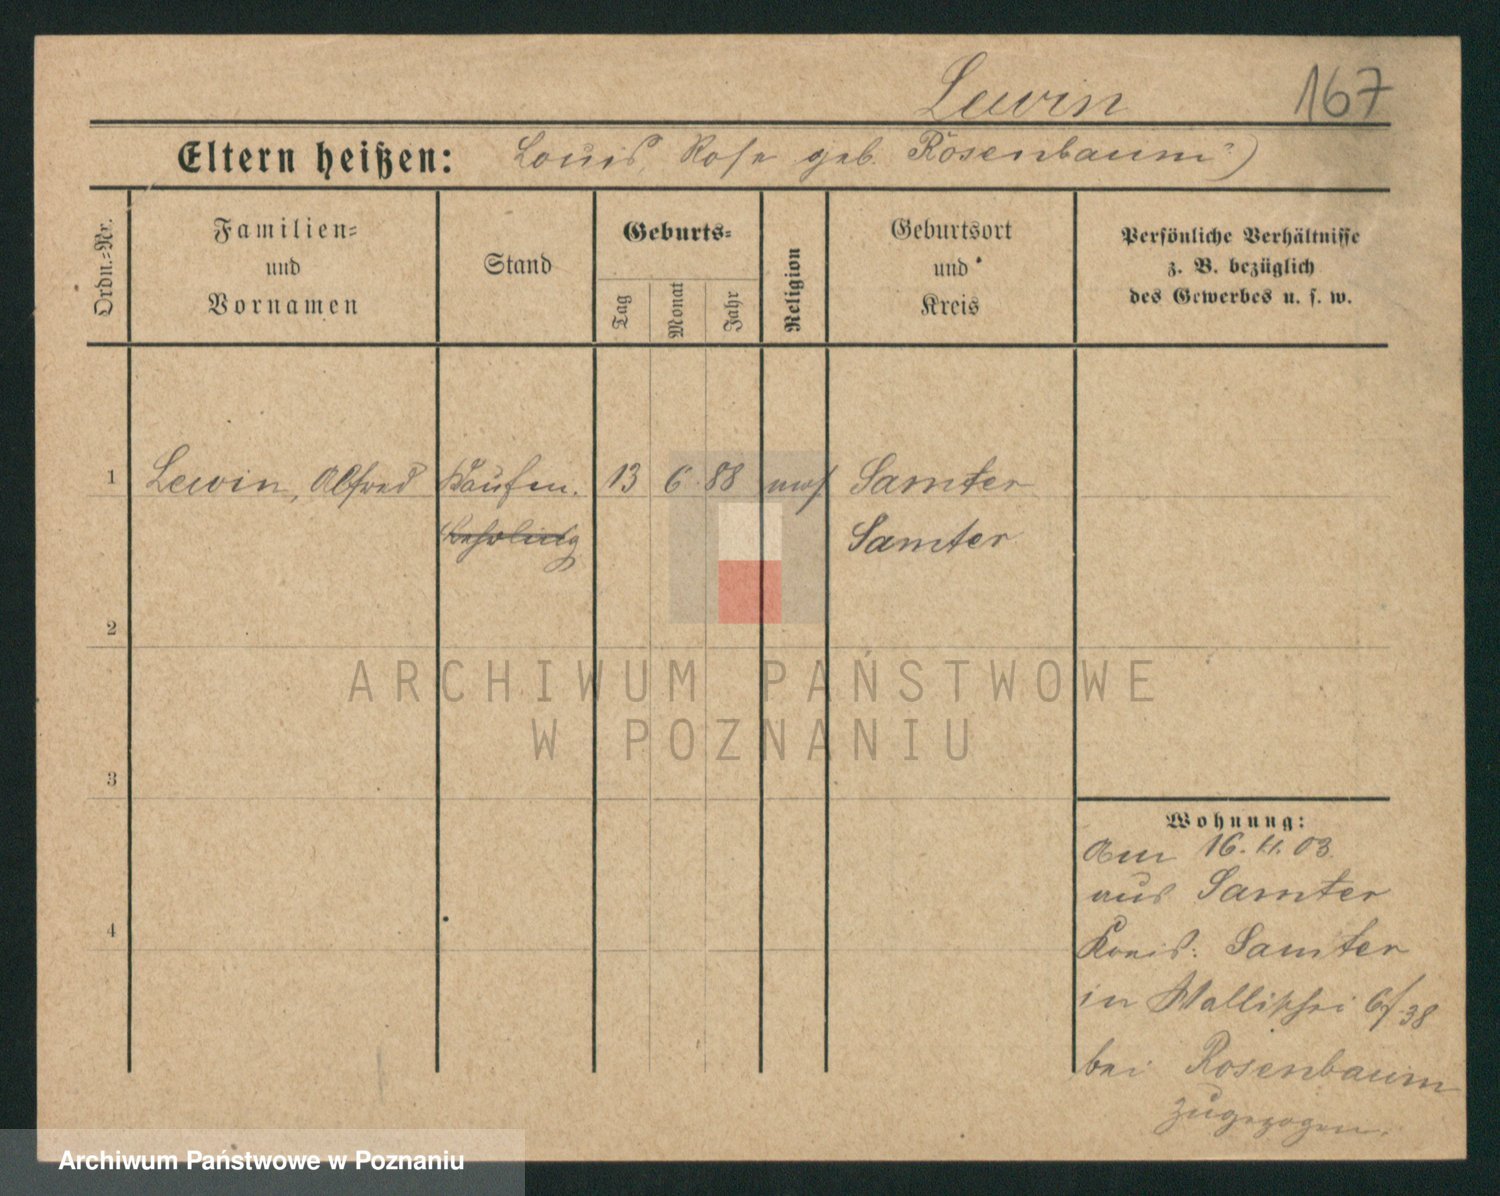 Lewin 167
Eltern heißen: Louis, Rosa geb. Rosenbaum)
Ordn.=Nr.
Familien=
und
Vornamen
Stand
Geburts=
Tag
Monat
Jahr
Religion
Geburtsort
und
Kreis
Persönliche Verhältnisse
z. B. bezüglich
des Gewerbes u. s. w.
1 Lewin, Alfred Kaufm. 13 6 88 mos Samter
Samter
2
ARCHIWUM PAŃSTWOWE
W POZNANIU
3
Wohnung:
Am 16. 11. 03.
aus Samter
4
Kreis: Samter
in Wallischei 38
bei Rosenbaum
zugezogen.
Archiwum Państwowe w Poznaniu